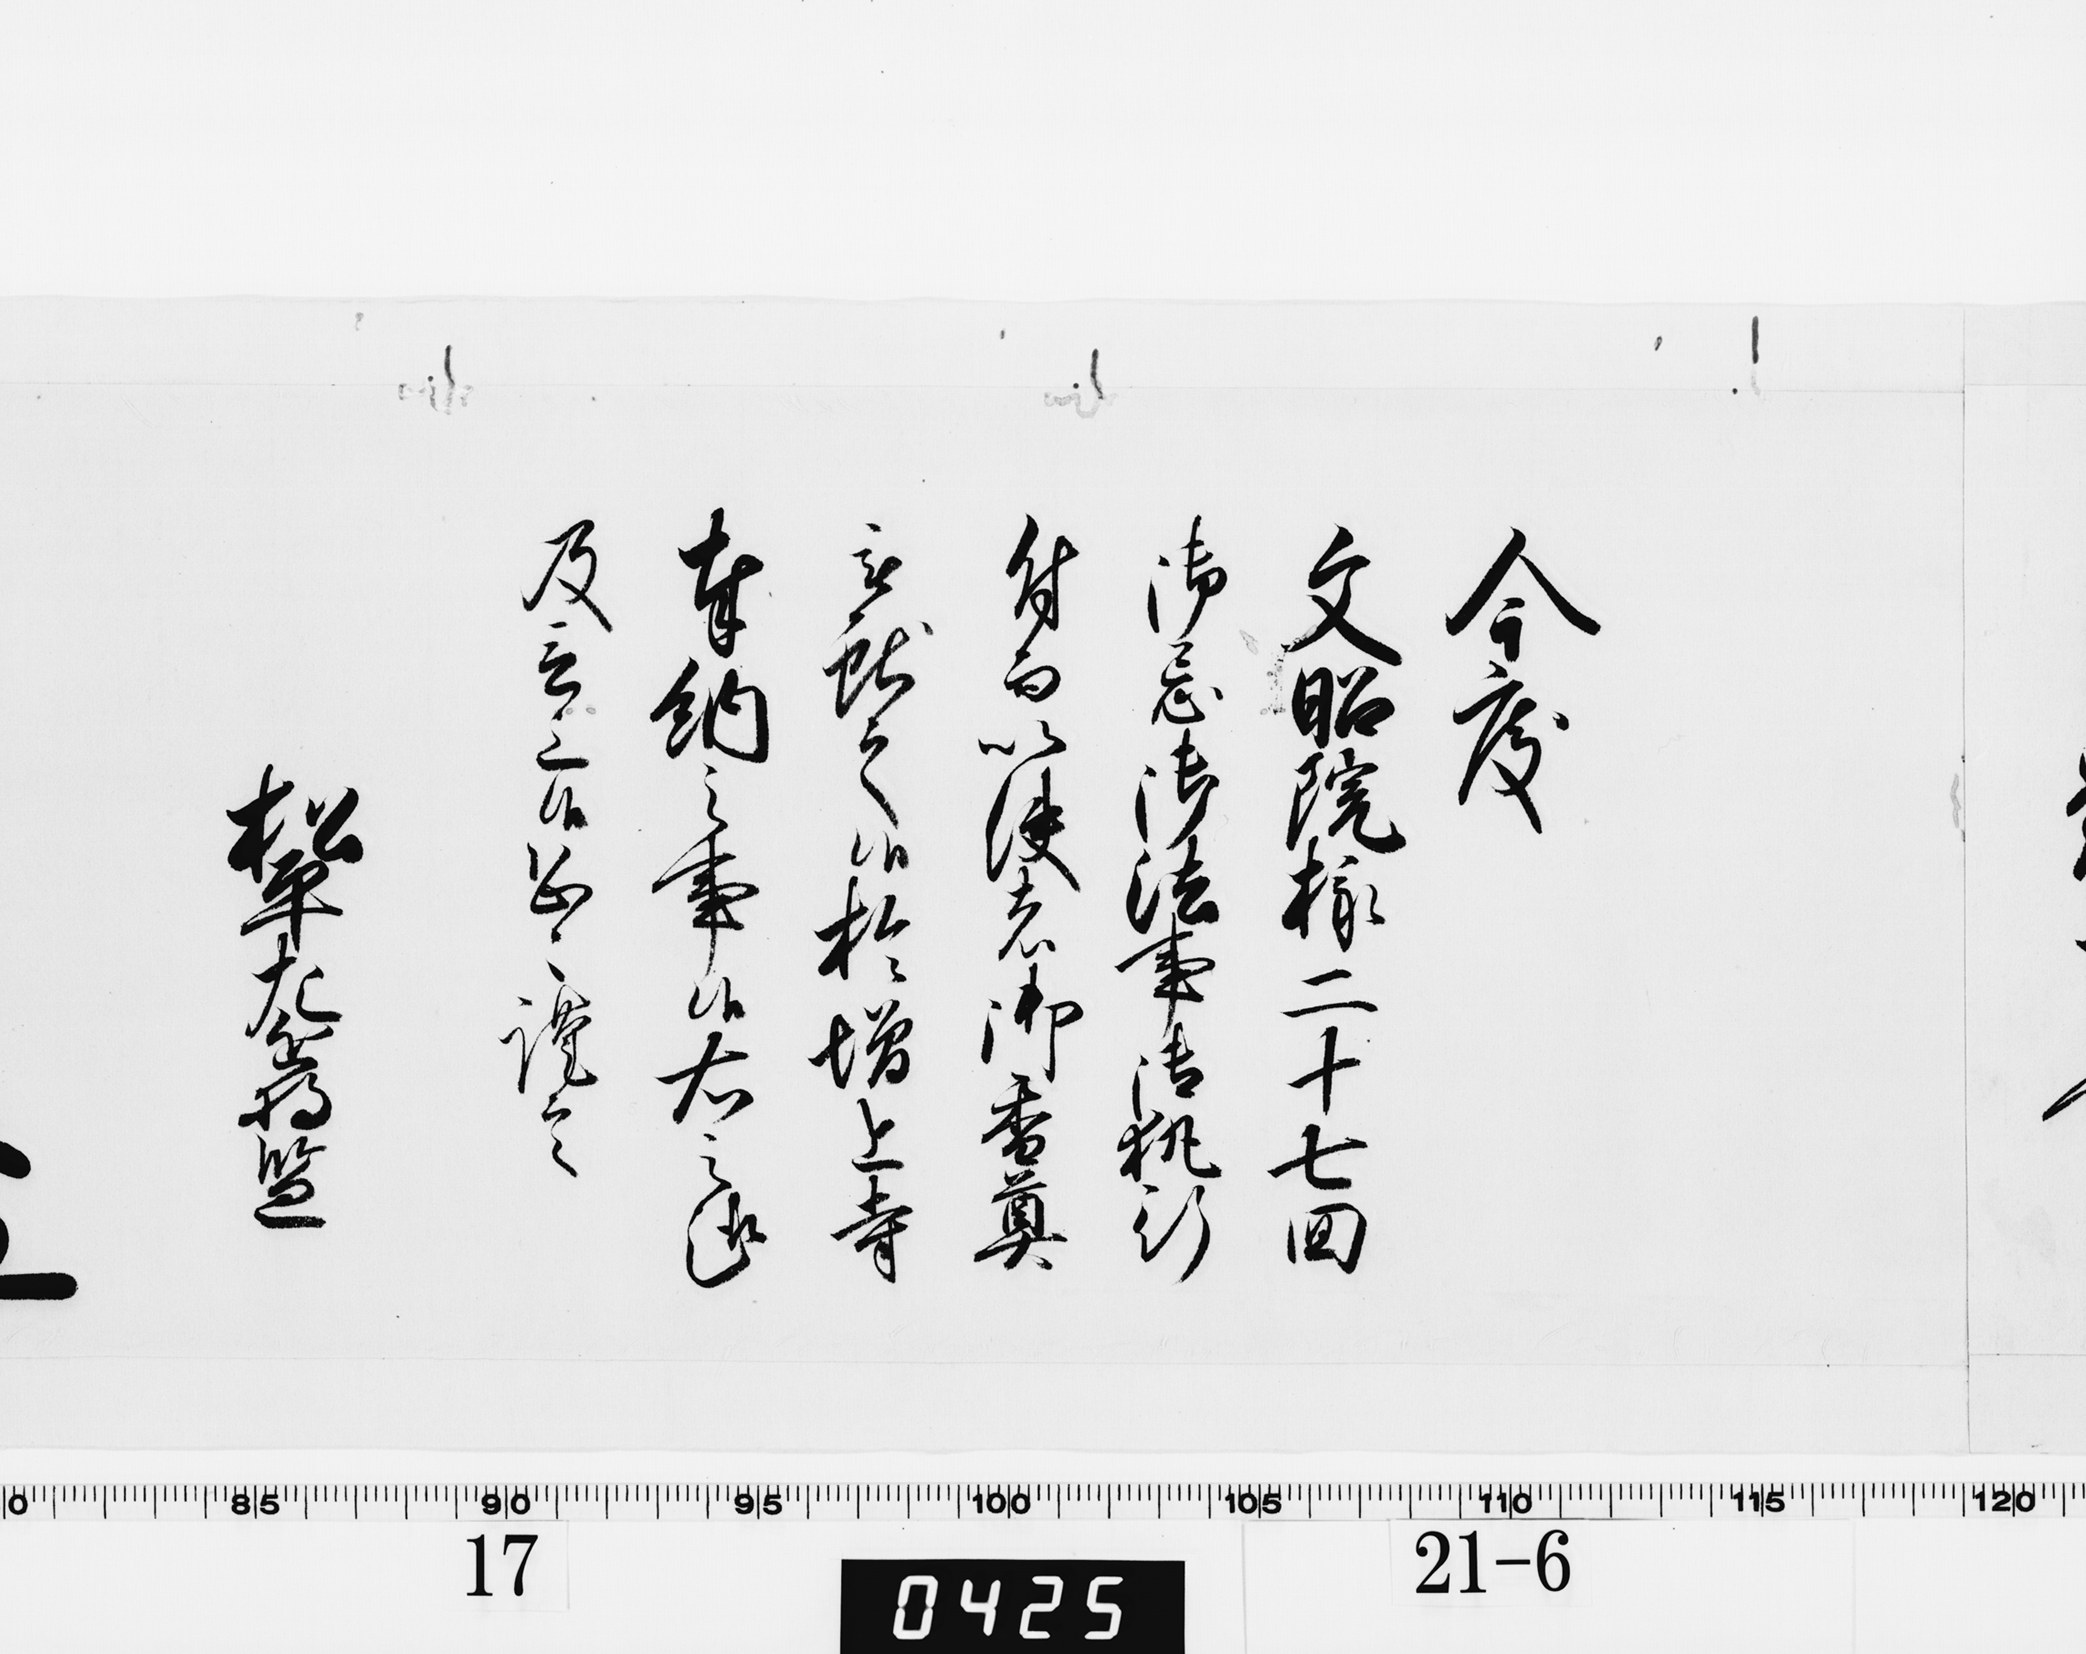 今度
文昭院様二十七回
御忌御法事御執行
付而以使者御香奠
被献之候於増上寺
奉納之事候右之趣
及言上候恐々謹言
松平左近将監
85 90 95 100 105 110 115 120
17
0425
21-6